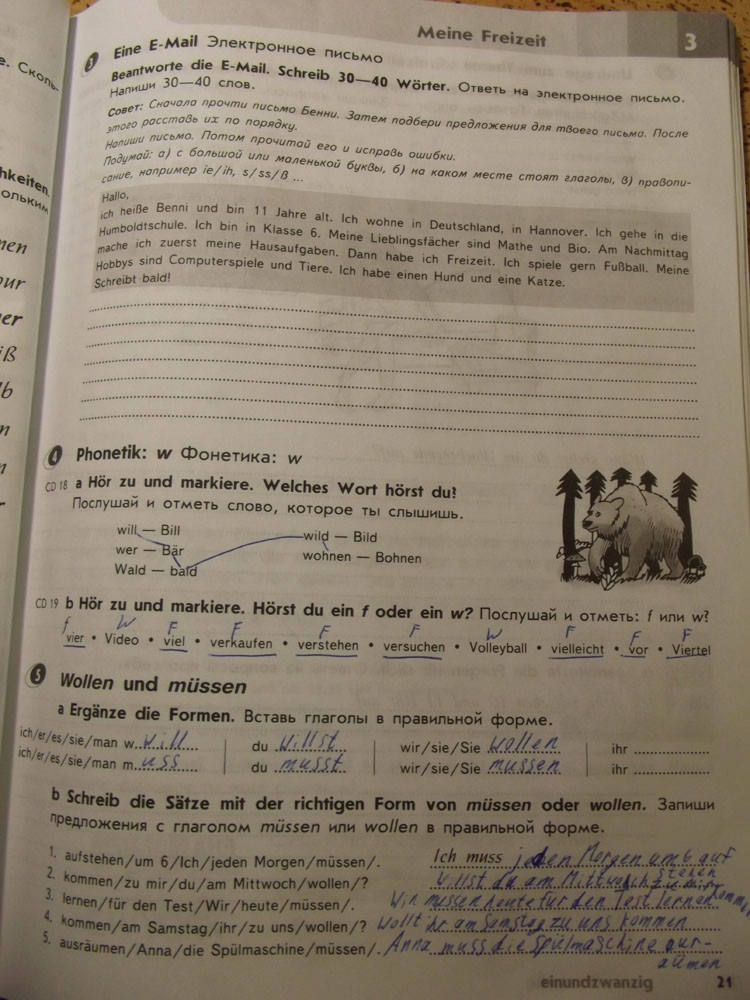 Meine Freizeit
3
3 Eine E-Mail Электронное письмо
Beantworte die E-Mail. Schreib 30—40 Wörter. Ответь на электронное письмо.
Напиши 30—40 слов.
Совет: Сначала прочти письмо Бенни. Затем подбери предложения для твоего письма. После
этого расставь их по порядку.
Напиши письмо. Потом прочитай его и исправь ошибки.
Подумай: а) с большой или маленькой буквы, б) на каком месте стоят глаголы, в) правопи-
сание, например ie/ih, s/ss/ß ...
Hallo,
ich heiße Benni und bin 11 Jahre alt. Ich wohne in Deutschland, in Hannover. Ich gehe in die
Humboldtschule. Ich bin in Klasse 6. Meine Lieblingsfächer sind Mathe und Bio. Am Nachmittag
mache ich zuerst meine Hausaufgaben. Dann habe ich Freizeit. Ich spiele gern Fußball. Meine
Hobbys sind Computerspiele und Tiere. Ich habe einen Hund und eine Katze.
Schreibt bald!
4 Phonetik: w Фонетика: w
CD 18 a Hör zu und markiere. Welches Wort hörst du?
Послушай и отметь слово, которое ты слышишь.
will — Bill
wild — Bild
wer — Bär
wohnen — Bohnen
Wald — bald
CD 19 b Hör zu und markiere. Hörst du ein f oder ein w? Послушай и отметь: f или w?
f W F F F F W F F F
vier • Video • viel • verkaufen • verstehen • versuchen • Volleyball • vielleicht • vor • Viertel
5 Wollen und müssen
a Ergänze die Formen. Вставь глаголы в правильной форме.
ich/er/es/sie/man w ill du willst wir/sie/Sie wollen ihr
ich/er/es/sie/man m uss du musst wir/sie/Sie mussen ihr
b Schreib die Sätze mit der richtigen Form von müssen oder wollen. Запиши
предложения с глаголом müssen или wollen в правильной форме.
1. aufstehen/um 6/Ich/jeden Morgen/müssen/. Ich muss jeden Morgen um 6 auf
stehen
2. kommen/zu mir/du/am Mittwoch/wollen/? Willst du am Mittwoch zu mir
kommen
3. lernen/für den Test/Wir/heute/müssen/. Wir mussen heute fur den Test lernen
4. kommen/am Samstag/ihr/zu uns/wollen/? Wollt ihr am Samstag zu uns kommen
5. ausräumen/Anna/die Spülmaschine/müssen/. Anna muss die Spulmaschine aus-
räumen
einundzwanzig 21